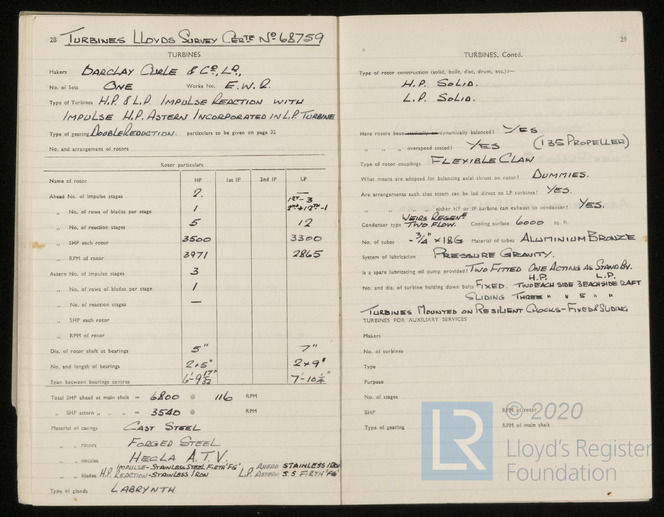 28 TURBINES LLOYDS SURVEY CERTE No 68759
TURBINES
Makers BARCLAY CURLE & Co, LD,
No. of Sets ONE Works No. E.W.R.
Type of Turbines H.P. & L.P. IMPULSE REACTION WITH
IMPULSE H.P. ASTERN INCORPORATED IN L.P. TURBINE
Type of gearing DOUBLE REDUCTION. particulars to be given on page 32
No. and arrangement of rotors
Rotor particulars
Name of rotor HP 1st IP 2nd IP LP
Ahead No. of impulse stages 2. —
„ No. of rows of blades per stage 1 1ST-3 2ND+12TH-1
„ No. of reaction stages 5 12
„ SHP each rotor 3500 3300
„ RPM of rotor 3971 2865
Astern No. of impulse stages 3
„ No. of rows of blades per stage 1
„ No. of reaction stages —
„ SHP each rotor
„ RPM of rotor
Dia. of rotor shaft at bearings 5" 7"
No. and length of bearings 2×5" 2×9"
Span between bearings centres
Total SHP ahead at main shaft = 6800 @ 116 RPM
„ SHP astern „ „ = 3540 @ RPM
Material of casings CAST STEEL
„ „ rotors FORGED STEEL
„ „ nozzles HECLA A.T.V.
„ „ blades H.P. IMPULSE-STAINLESS STEEL FIRTH "FG" REACTION-STAINLESS IRON L.P. AHEAD STAINLESS IRON ASTERN S.S. FIRTH "FG"
Type of glands LABRYNTH
29
TURBINES, Contd.
Type of rotor construction (solid, built, disc, drum, etc.):—
H.P. SOLID.
L.P. SOLID.
Have rotors been dynamically balanced? YES
„ „ „ overspeed tested? YES (135 PROPELLER)
Type of rotor couplings FLEXIBLE CLAW
What means are adopted for balancing axial thrust on rotor? DUMMIES.
Are arrangements such that steam can be led direct to LP turbine? YES.
„ „ „ either HP or IP turbine can exhaust to condenser? YES.
Condenser type WEIRS REGENR TWO FLOW. Cooling surface 6000 sq. ft.
No. of tubes - 3/4" × 18G Material of tubes ALUMINIUM BRONZE
System of lubrication PRESSURE GRAVITY.
Is a spare lubricating oil pump provided? TWO FITTED ONE ACTING AS STANDBY.
H.P. L.P.
No. and dia. of turbine holding down bolts FIXED. TWO EACH SIDE 3 EACH SIDE AFT
SLIDING THREE " " 5 " "
TURBINES MOUNTED ON RESILIENT CHOCKS-FIXED & SLIDING
TURBINES FOR AUXILIARY SERVICES
Makers
No. of turbines
Type
Purpose
No. of stages
SHP RPM of rotor
Type of gearing RPM of main shaft
LR © 2020
Lloyd's Register
Foundation